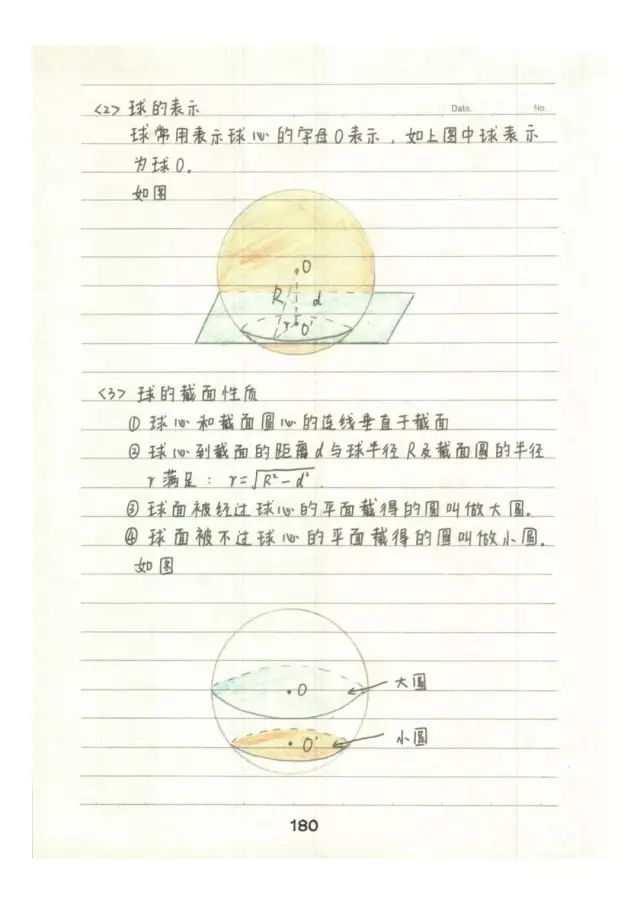 <2> 球的表示
Date.
No.
球常用表示球心的字母O表示，如上图中球表示
为球O.
如图
O
R
d
r
O'
<3> 球的截面性质
① 球心和截面圆心的连线垂直于截面
② 球心到截面的距离d与球半径R及截面圆的半径
r满足：r=√(R²-d²).
③ 球面被经过球心的平面截得的圆叫做大圆.
④ 球面被不过球心的平面截得的圆叫做小圆.
如图
大圆
O
小圆
O'
180